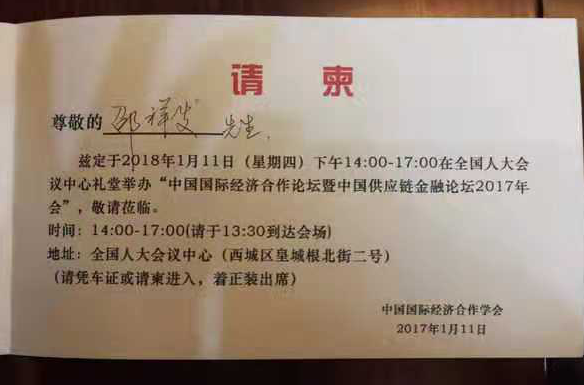 请柬
尊敬的 邵祥发 先生,
兹定于2018年1月11日（星期四）下午14:00-17:00在全国人大会
议中心礼堂举办“中国国际经济合作论坛暨中国供应链金融论坛2017年
会”，敬请莅临。
时间：14:00-17:00(请于13:30到达会场)
地址：全国人大会议中心（西城区皇城根北街二号）
(请凭车证或请柬进入，着正装出席)
中国国际经济合作学会
2017年1月11日